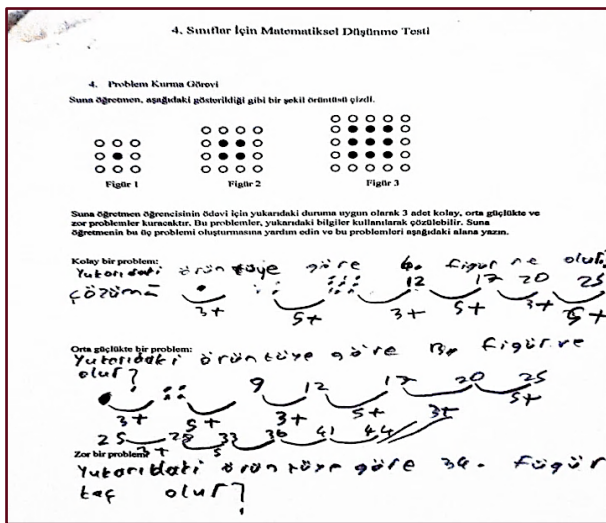 4. Sınıflar İçin Matematiksel Düşünme Testi
4. Problem Kurma Görevi
Suna öğretmen, aşağıdaki gösterildiği gibi bir şekil örüntüsü çizdi.
Figür 1 Figür 2 Figür 3
Suna öğretmen öğrencisinin ödevi için yukarıdaki duruma uygun olarak 3 adet kolay, orta güçlükte ve
zor problemler kuracaktır. Bu problemler, yukarıdaki bilgiler kullanılarak çözülebilir. Suna
öğretmenin bu üç problemi oluşturmasına yardım edin ve bu problemleri aşağıdaki alana yazın.
Kolay bir problem:
Yukarıdaki örüntüye göre 6. figür ne olur.
çözümü 12 17 20 25
3+ 5+ 3+ 5+ 3+ 5+
Orta güçlükte bir problem:
Yukarıdaki örüntüye göre figür ne
olur?
9 12 17 20 25
3+ 5+ 3+ 5+ 3+ 5+
25 28 33 36 41 44
3+ 5
Zor bir problem:
Yukarıdaki örüntüye göre 34. Fügür
kaç olur?